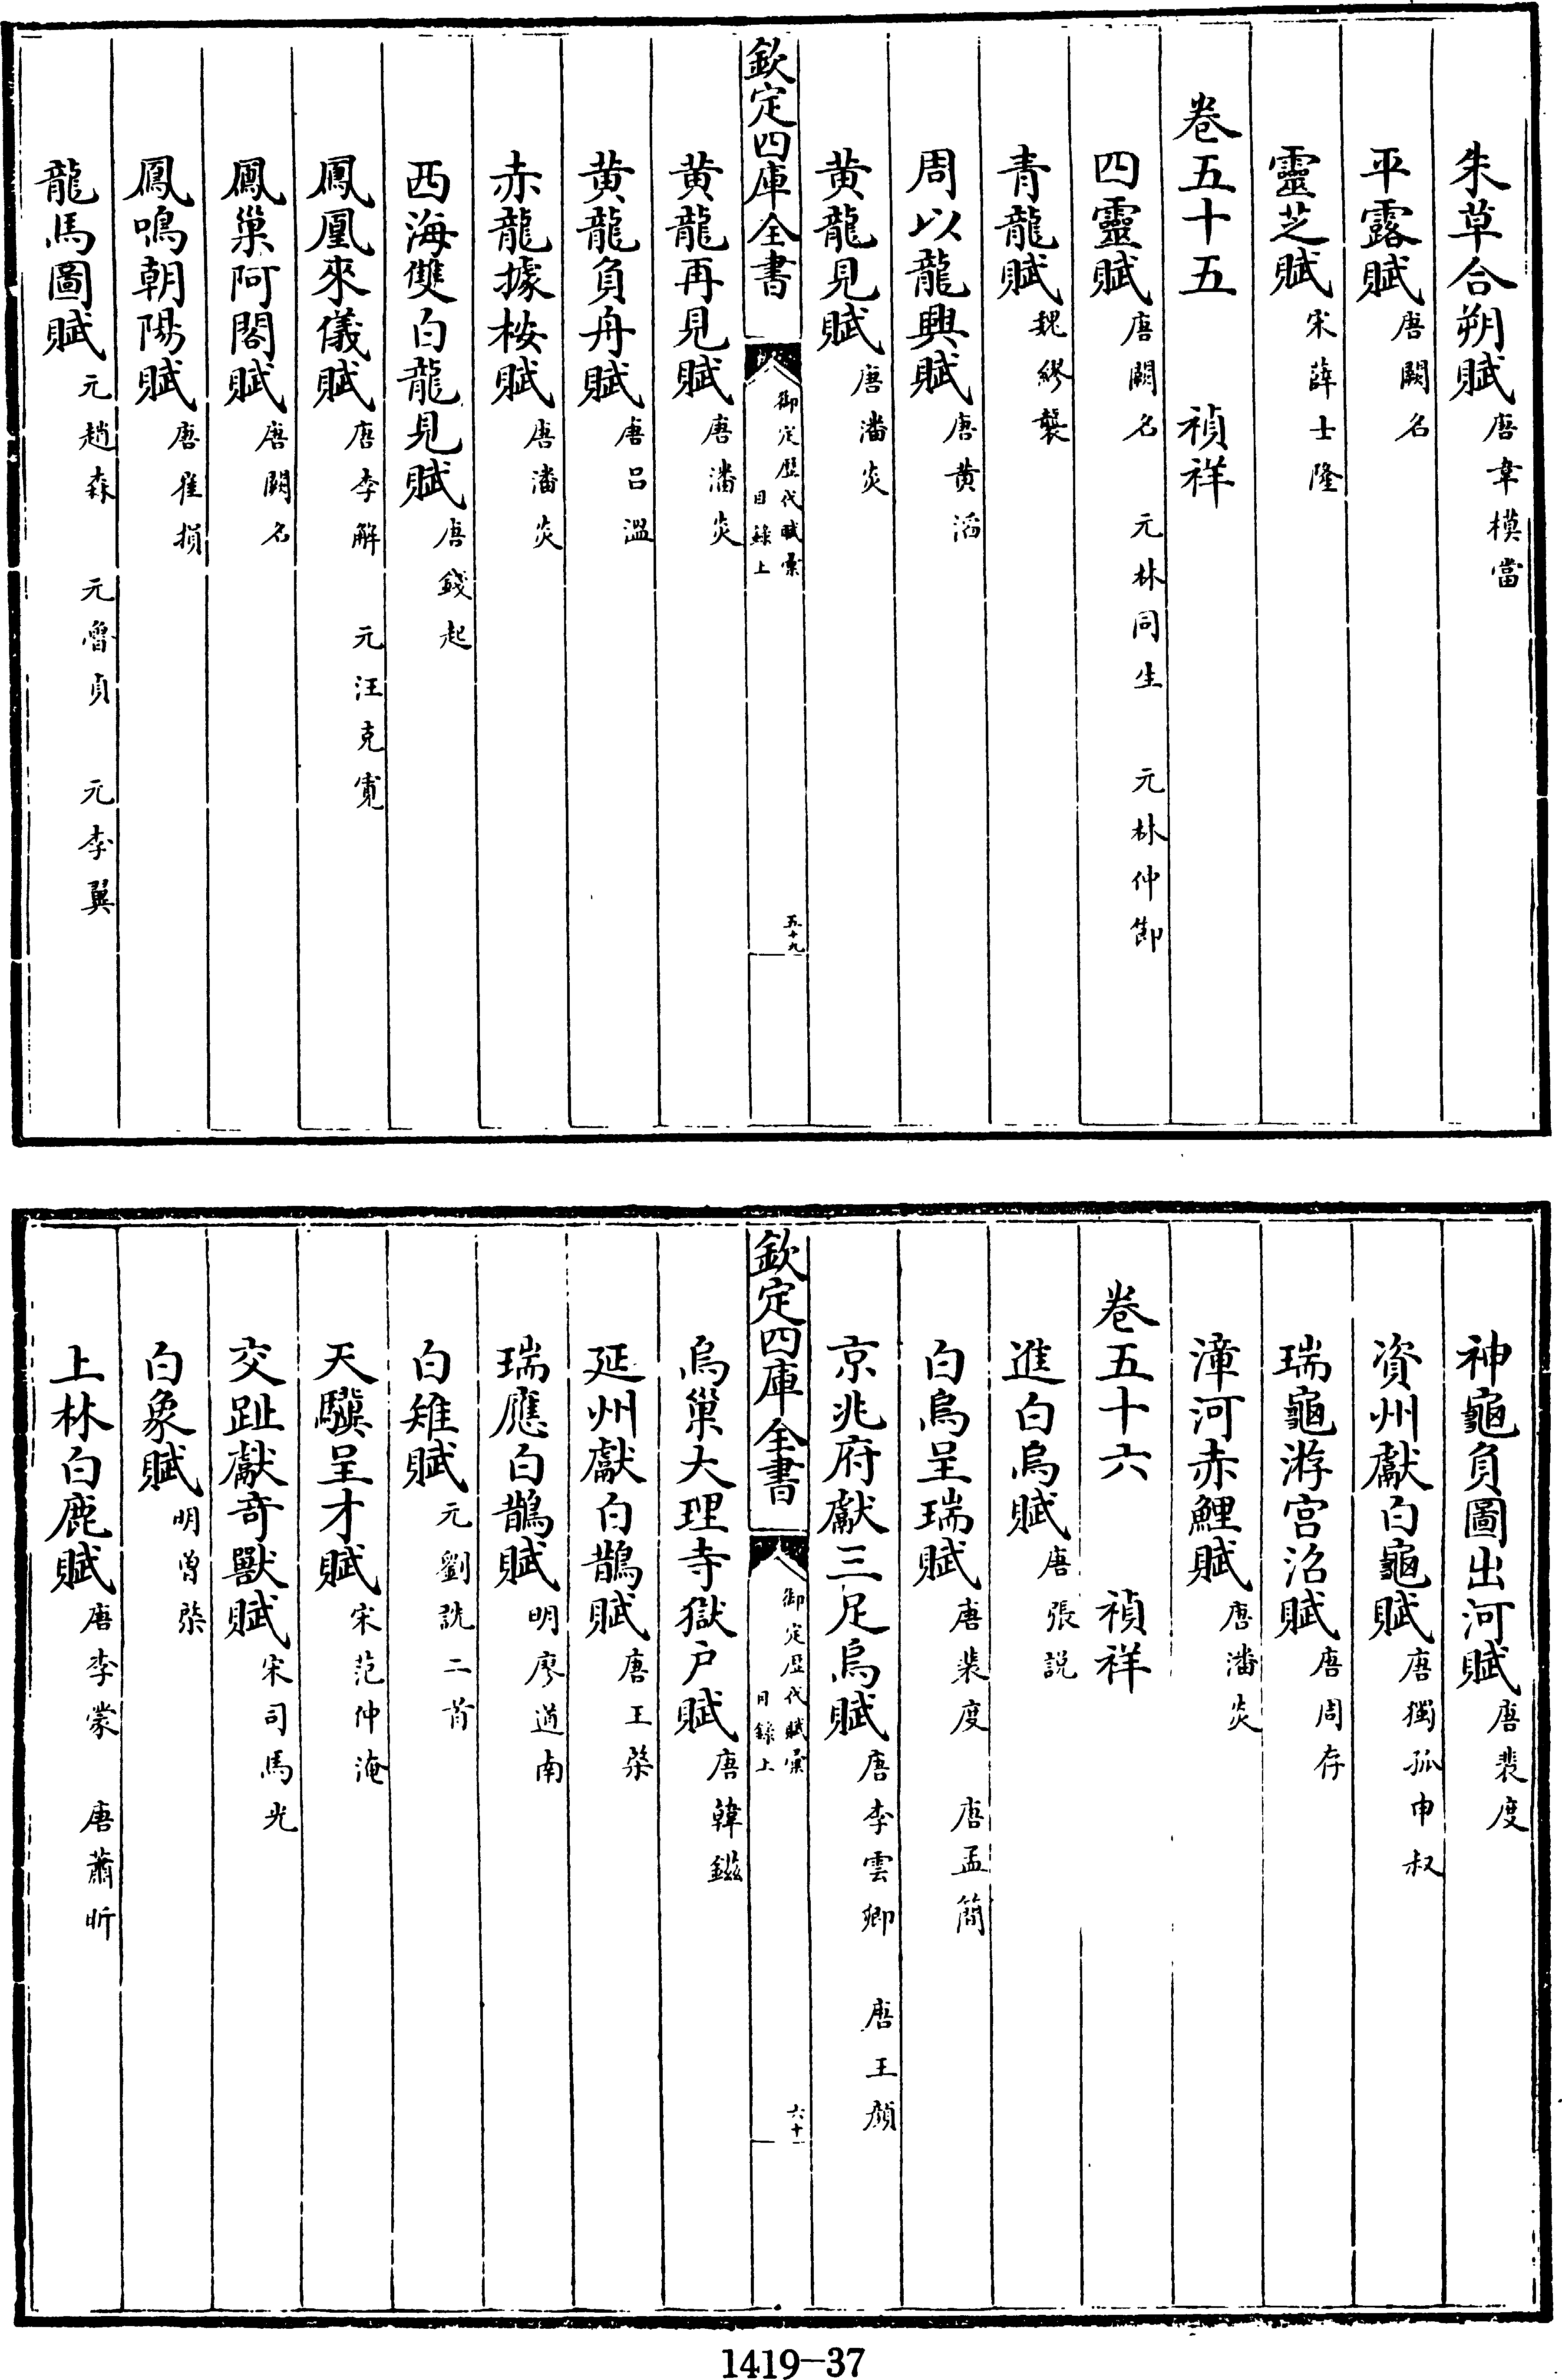 朱草合朔賦唐韋模當
平露賦唐闕名
靈芝賦宋薛士隆
卷五十五　禎祥
四靈賦唐闕名　元林同生　元林仲節
青龍賦魏繆襲
周以龍興賦唐黄滔
黄龍見賦唐潘炎
欽定四庫全書
御定歷代賦彙
目錄上
五十九
黄龍再見賦唐潘炎
黄龍負舟賦唐呂溫
赤龍據桉賦唐潘炎
西海雙白龍見賦唐錢起
鳳凰來儀賦唐李解　元汪克寬
鳳巢阿閣賦唐闕名
鳳鳴朝陽賦唐崔損
龍馬圖賦元趙森　元魯貞　元李翼
神龜負圖出河賦唐裴度
資州獻白龜賦唐獨孤申叔
瑞龜游宮沼賦唐周存
漳河赤鯉賦唐潘炎
卷五十六　禎祥
進白烏賦唐張說
白烏呈瑞賦唐裴度　唐孟簡
京兆府獻三足烏賦唐李雲卿　唐王顏
欽定四庫全書
御定歷代賦彙
目錄上
六十
烏巢大理寺獄户賦唐韓鎡
延州獻白鵲賦唐王棨
瑞應白鵲賦明廖道南
白雉賦元劉詵二首
天驥呈才賦宋范仲淹
交趾獻奇獸賦宋司馬光
白象賦明曾棨
上林白鹿賦唐李蒙　唐蕭昕
1419-37